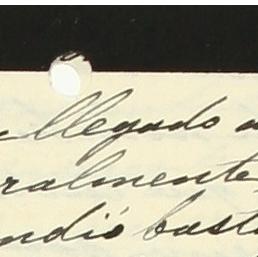 llegado a
ralmente,
ndió bast